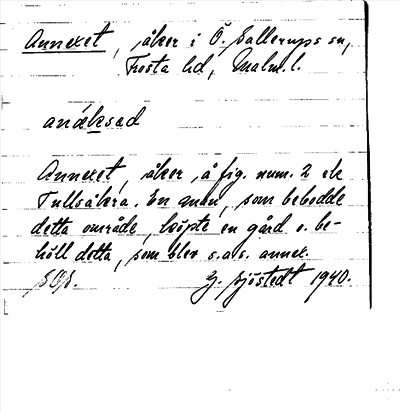 Annexet, åker i Ö. Sallerups sn,
Frosta hd, Malm. l.
anáksad
Annexet, åker, å fig. num. 2 ek
Tullsåkra. En man, som bebodde
detta område, köpte en gård o. be-
höll detta, som blev s.a.s. annex.
G. Sjöstedt 1940.